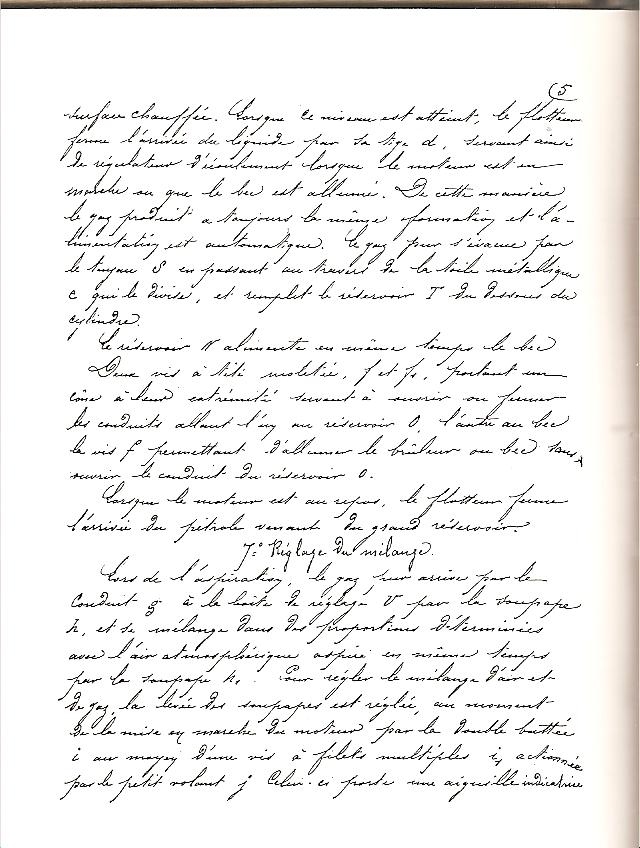 5
surface chauffée. Lorsque ce niveau est atteint, le flotteur
ferme l'arrivée du liquide par sa tige d, servant ainsi
de régulateur d'écoulement lorsque le moteur est en
marche ou que le bec est allumé. De cette manière
le gaz produit a toujours la même formation et l'a-
limentation est automatique. Le gaz pur s'évacue par
le tuyau S en passant au travers de la toile métallique
c qui le divise, et remplit le réservoir T du dessous du
cylindre.
Le réservoir N alimente en même temps le bec
Deux vis à tête moletée, f et f1, portant un
cône à leur extrémité servant à ouvrir ou fermer
les conduits allant l'un au réservoir O, l'autre au bec
la vis f permettant d'allumer le brûleur ou bec sans
ouvrir le conduit du réservoir O.
Lorsque le moteur est au repos, le flotteur ferme
l'arrivée du pétrole venant du grand réservoir.
7.º Réglage du mélange.
Lors de l'aspiration, le gaz pur arrive par le
conduit g à la boîte de réglage V par la soupape
h, et se mélange dans des proportions déterminées
avec l'air atmosphérique aspiré en même temps
par la soupape h1. Pour régler le mélange d'air et
de gaz, la levée des soupapes est réglée, au moment
de la mise en marche du moteur par la double buttée
i au moyen d'une vis à filets multiples i1 actionnée
par le petit volant j Celui-ci porte une aiguille indicatrice